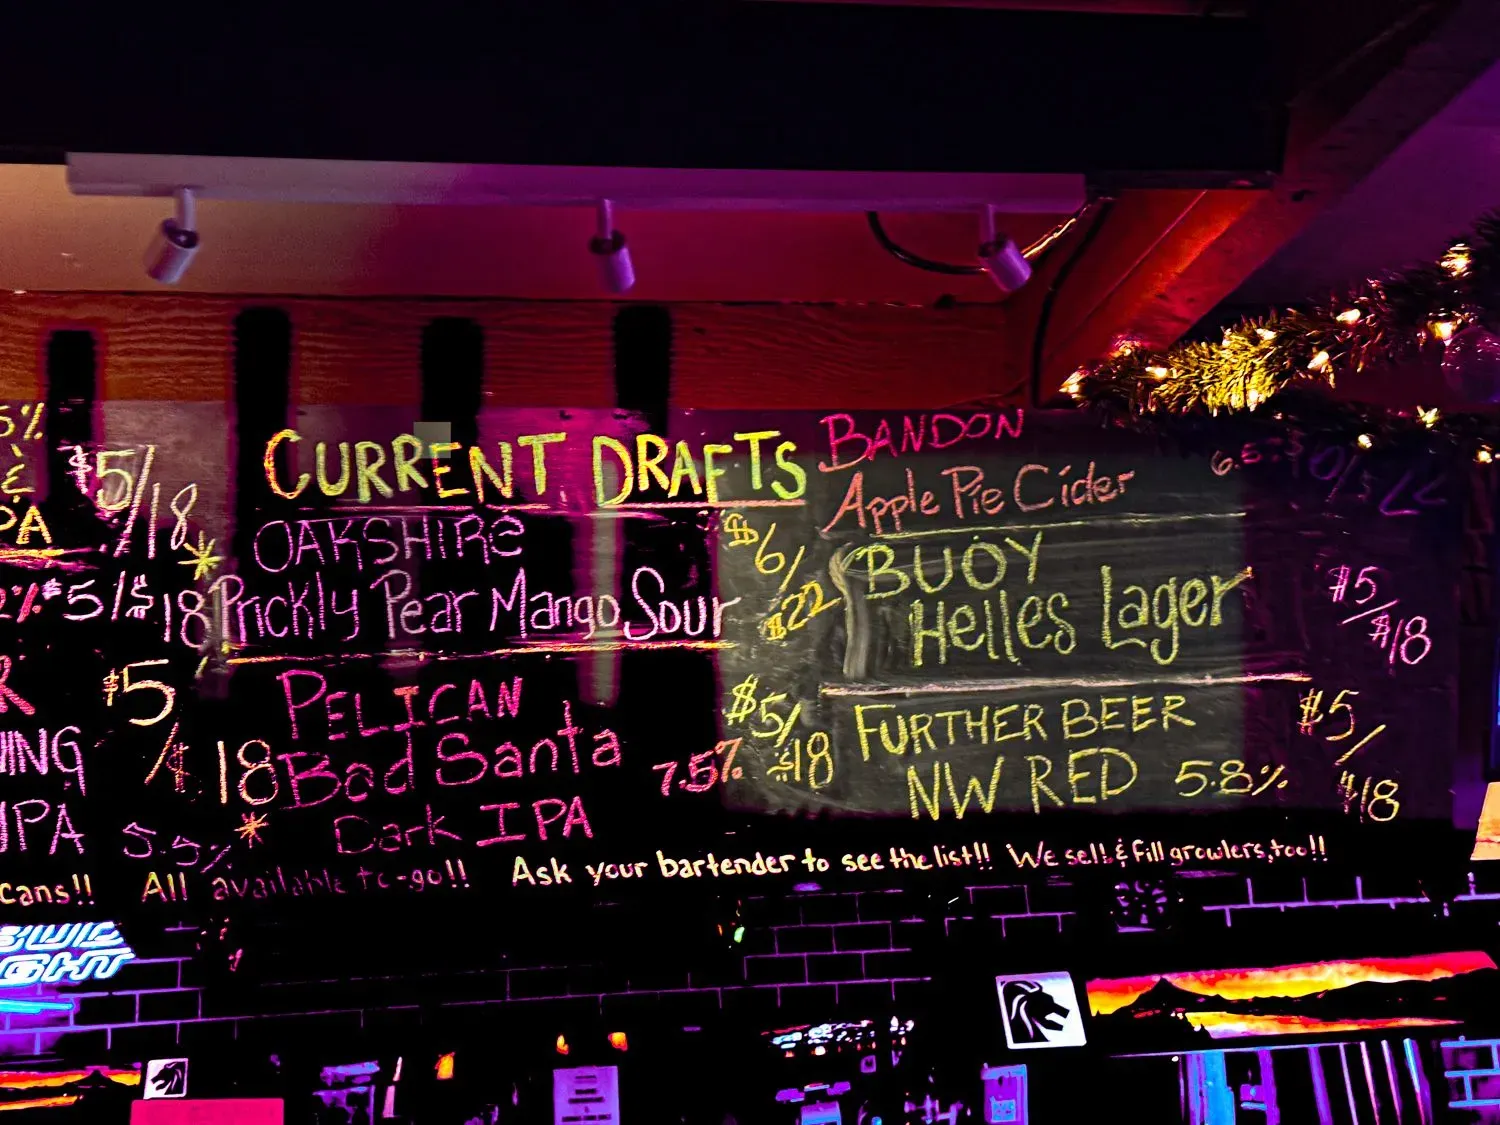 5%
$5/18
&
PA
2% $5/$18
R
$5/$18
ING
IPA 5.5%
CURRENT DRAFTS
OAKSHIRE $6/$22
Prickly Pear Mango Sour
PELICAN $5/$18
Bad Santa 7.5%
Dark IPA
BANDON
Apple Pie Cider 6.5
BUOY
Helles Lager $5/$18
FURTHER BEER $5/$18
NW RED 5.8%
cans!! All available to-go!! Ask your bartender to see the list!! We sell & fill growlers, too!!